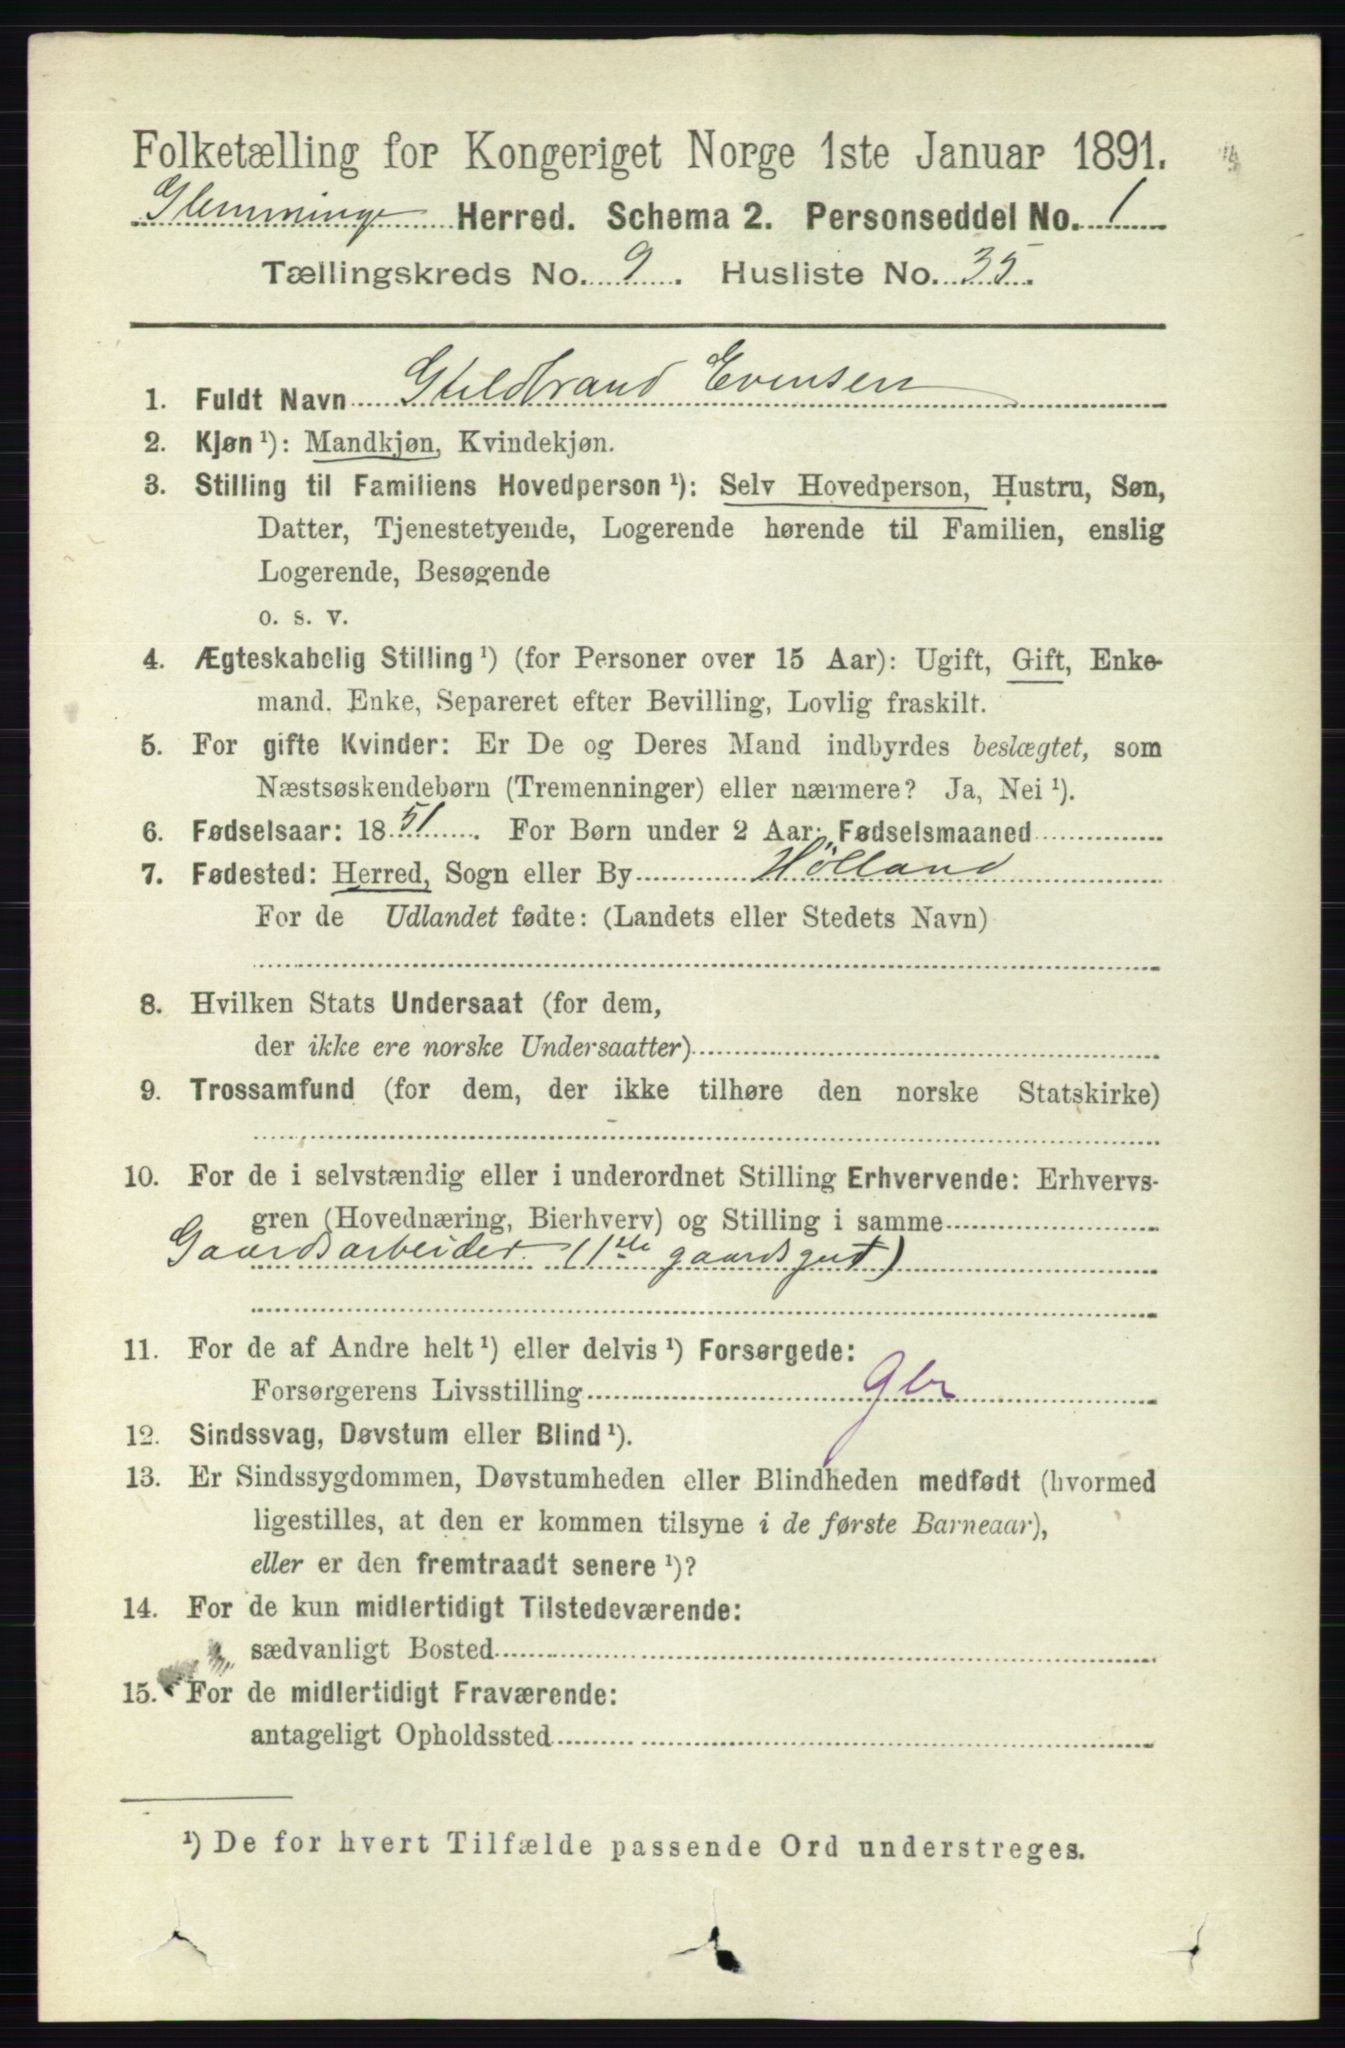 Folketælling for Kongeriget Norge 1ste Januar 1891.
Glemminge Herred. Schema 2. Personseddel No. 1
Tællingskreds No. 9. Husliste No. 35.
1. Fuldt Navn Hildbrand Evensen
2. Kjøn ¹): Mandkjøn, Kvindekjøn.
3. Stilling til Familiens Hovedperson ¹): Selv Hovedperson, Hustru, Søn,
Datter, Tjenestetyende, Logerende hørende til Familien, enslig
Logerende, Besøgende
o. s. v.
4. Ægteskabelig Stilling ¹) (for Personer over 15 Aar): Ugift, Gift, Enke-
mand, Enke, Separeret efter Bevilling, Lovlig fraskilt.
5. For gifte Kvinder: Er De og Deres Mand indbyrdes beslægtet, som
Næstsøskendebørn (Tremenninger) eller nærmere? Ja, Nei ¹).
6. Fødselsaar: 1851. For Børn under 2 Aar: Fødselsmaaned
7. Fødested: Herred, Sogn eller By Hölland
For de Udlandet fødte: (Landets eller Stedets Navn)
8. Hvilken Stats Undersaat (for dem,
der ikke ere norske Undersaatter)
9. Trossamfund (for dem, der ikke tilhøre den norske Statskirke)
10. For de i selvstændig eller i underordnet Stilling Erhvervende: Erhvervs-
gren (Hovednæring, Bierhverv) og Stilling i samme
Gaardsarbeider (1ste gaardsgut)
11. For de af Andre helt ¹) eller delvis ¹) Forsørgede:
Forsørgerens Livsstilling Gbr
12. Sindssvag, Døvstum eller Blind ¹).
13. Er Sindssygdommen, Døvstumheden eller Blindheden medfødt (hvormed
ligestilles, at den er kommen tilsyne i de første Barneaar),
eller er den fremtraadt senere ¹)?
14. For de kun midlertidigt Tilstedeværende:
sædvanligt Bosted
15. For de midlertidigt Fraværende:
antageligt Opholdssted
¹) De for hvert Tilfælde passende Ord understreges.